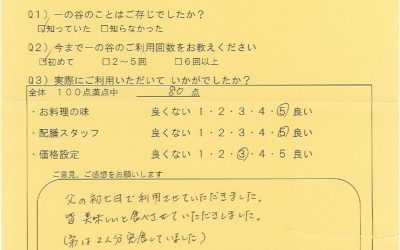 Q1）一の谷のことはご存じでしたか？
☑知っていた □知らなかった
Q2）今まで一の谷のご利用回数をお教えください
☑初めて □2～5回 □6回以上
Q3）実際にご利用いただいて いかがでしたか？
全体 １００点満点中 80 点
・お料理の味 良くない 1・2・3・4・⑤ 良い
・配膳スタッフ 良くない 1・2・3・4・⑤ 良い
・価格設定 良くない 1・2・③・4・5 良い
ご意見、ご感想をお願いします
父の初七日で利用させていただきました。
皆 美味しいと食べさせていただきました。
(弟は2人分完食していました)